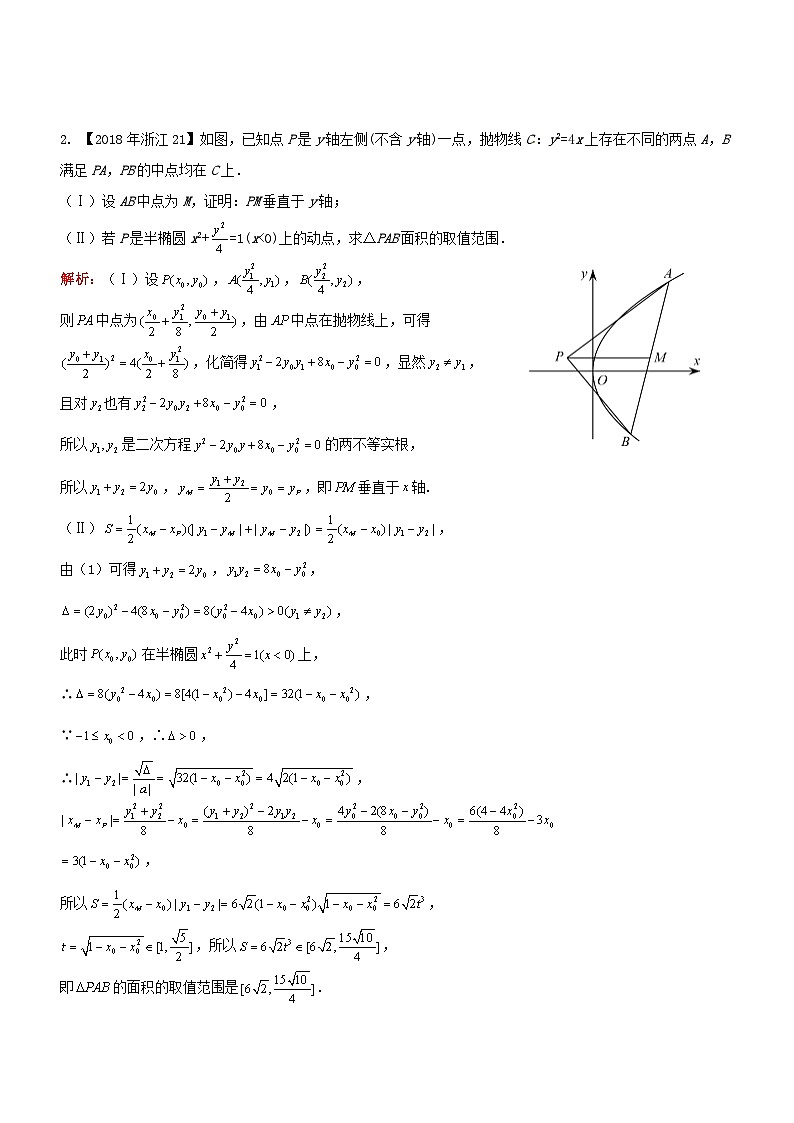 2. 【2018年浙江21】如图，已知点P是y轴左侧(不含y轴)一点，抛物线C：y²=4x上存在不同的两点A，B
满足PA，PB的中点均在C上.
(Ⅰ)设AB中点为M，证明：PM垂直于y轴；
(Ⅱ)若P是半椭圆x²+y²/4=1(x<0)上的动点，求△PAB面积的取值范围.
解析：(Ⅰ)设P(x₀,y₀)，A(y₁²/4,y₁)，B(y₂²/4,y₂)，
则PA中点为(x₀/2+y₁²/8,(y₀+y₁)/2)，由AP中点在抛物线上，可得
((y₀+y₁)/2)²=4(x₀/2+y₁²/8)，化简得y₁²−2y₀y₁+8x₀−y₀²=0，显然y₂≠y₁，
且对y₂也有y₂²−2y₀y₂+8x₀−y₀²=0，
所以y₁,y₂是二次方程y²−2y₀y+8x₀−y₀²=0的两不等实根，
所以y₁+y₂=2y₀，y_M=(y₁+y₂)/2=y₀=y_P，即PM垂直于x轴.
(Ⅱ)S=1/2(x_M−x_P)(|y₁−y_M|+|y_M−y₂|)=1/2(x_M−x₀)|y₁−y₂|，
由(1)可得y₁+y₂=2y₀，y₁y₂=8x₀−y₀²，
Δ=(2y₀)²−4(8x₀−y₀²)=8(y₀²−4x₀)>0(y₁≠y₂)，
此时P(x₀,y₀)在半椭圆x²+y²/4=1(x<0)上，
∴Δ=8(y₀²−4x₀)=8[4(1−x₀²)−4x₀]=32(1−x₀−x₀²)，
∵−1≤x₀<0，∴Δ>0，
∴|y₁−y₂|=√Δ/|a|=√(32(1−x₀−x₀²))=4√(2(1−x₀−x₀²))，
|x_M−x_P|=(y₁²+y₂²)/8−x₀=((y₁+y₂)²−2y₁y₂)/8−x₀=(4y₀²−2(8x₀−y₀²))/8−x₀=6(4−4x₀²)/8−3x₀
=3(1−x₀−x₀²)，
所以S=1/2(x_M−x₀)|y₁−y₂|=6√2(1−x₀−x₀²)√(1−x₀−x₀²)=6√2t³，
t=√(1−x₀−x₀²)∈[1,√5/2]，所以S=6√2t³∈[6√2,15√10/4]，
即ΔPAB的面积的取值范围是[6√2,15√10/4].
y
A
P
M
x
O
B